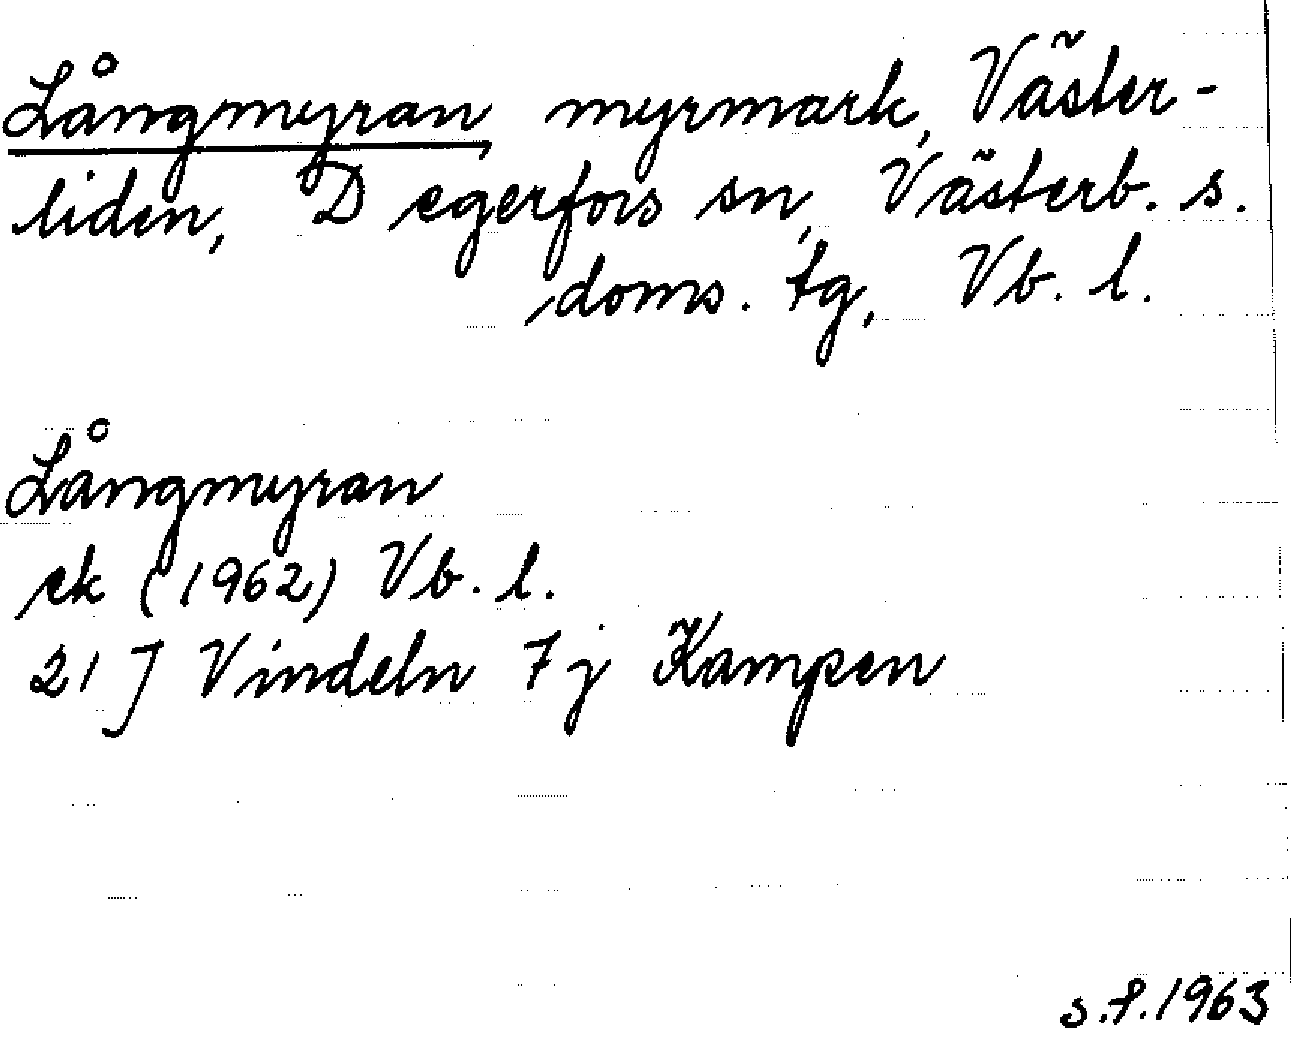 Långmyran, myrmark, Väster-
liden, Degerfors sn, Västerb. s.
doms. tg, Vb. l.
Långmyran
ek (1962) Vb. l.
21 J Vindeln 7 j Kampen
s.f. 1963